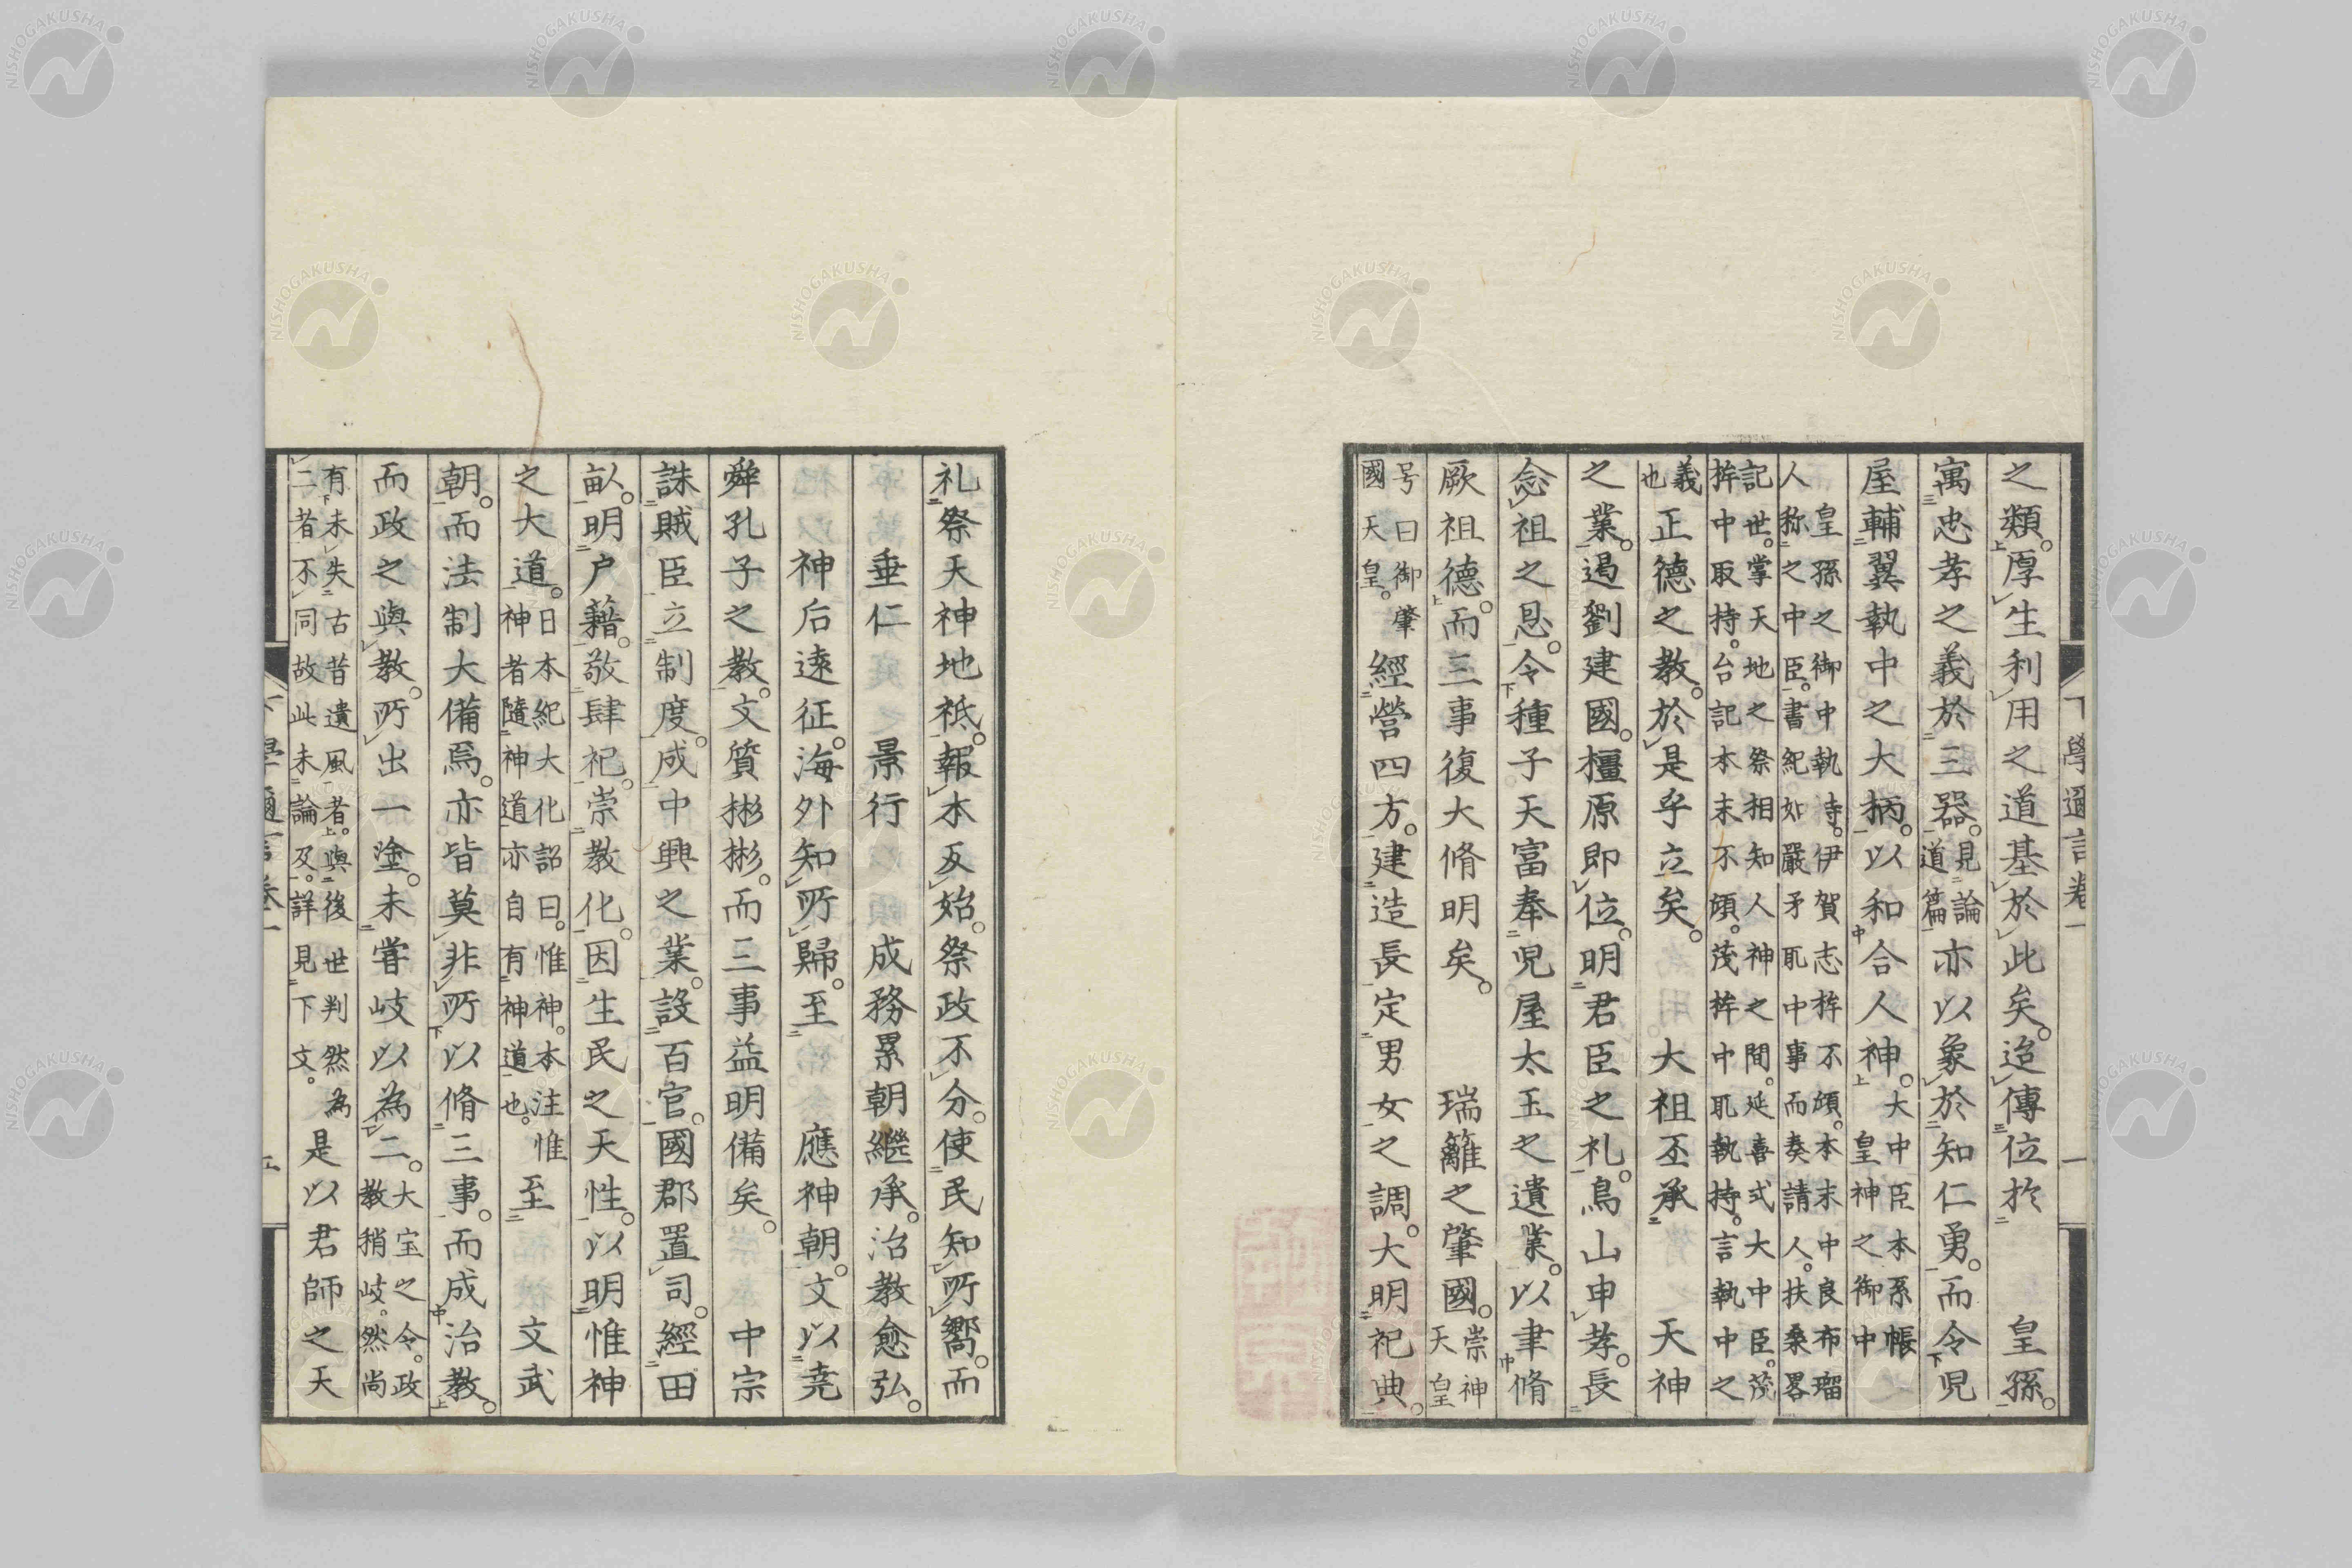 之類。厚生利用之道基於此矣。迨傳位於　皇孫。
寓忠孝之義於三器。見論道篇亦以象於知仁勇。而令児
屋輔翼執中之大柄。以和合人神。大中臣本系帳皇神之御中
皇孫之御中執持。伊賀志桙不傾。本末中良布瑠
人称之中臣。書紀如嚴矛取中事而奏請人。扶桑畧
記世。掌天地之祭相知人神之間。延喜式大中臣。茂
桙中取持。台記本末不傾。茂桙中取執持。言執中之
義也正德之教。於是乎立矣。　大祖丕承　天神
之業。遏劉建國。橿原即位。明君臣之礼。鳥山申孝。長
念祖之恩。令種子天富奉児屋太玉之遺業。以聿脩
厥祖德。而三事復大脩明矣。　瑞籬之肇國。崇神天皇
号曰御肇國天皇。經營四方。建造長定男女之調。大明祀典。
礼祭天神地祇。報本反始。祭政不分。使民知所嚮。而
垂仁　景行　成務累朝繼承。治教愈弘。
神后遠征。海外知所歸。至　應神朝。文以堯
舜孔子之教。文質彬彬。而三事益明備矣。　中宗
誅賊臣立制度。成中興之業。設百官。國郡置司。經田
畝。明户籍。敬肆祀。崇教化。因生民之天性。以明惟神
之大道。日本紀大化詔曰。惟神。本注惟神者隨神道亦自有神道也。至　文武
朝。而法制大備焉。亦皆莫非所以脩三事。而成治教。
而政之與教。所出一塗。未嘗岐以為二。大宝之令。政教稍岐。然尚
有未失古昔遺風者。與後世判然為二者不同故此未論及。詳見下文。是以君師之天
下學邇言卷一